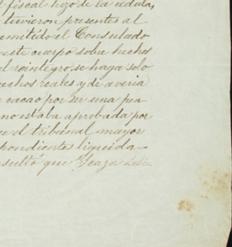 l fiscal hizo de la cédula,
tuvieron presentes al
emitido el Consulado
este cuerpo sobre hechos
el reintegro se haga solo
echos reales y de averia
cacao por ser una pra
no estaba aprobada por
en el tribunal mayor
pondiente liquida
sultó que Ycaza